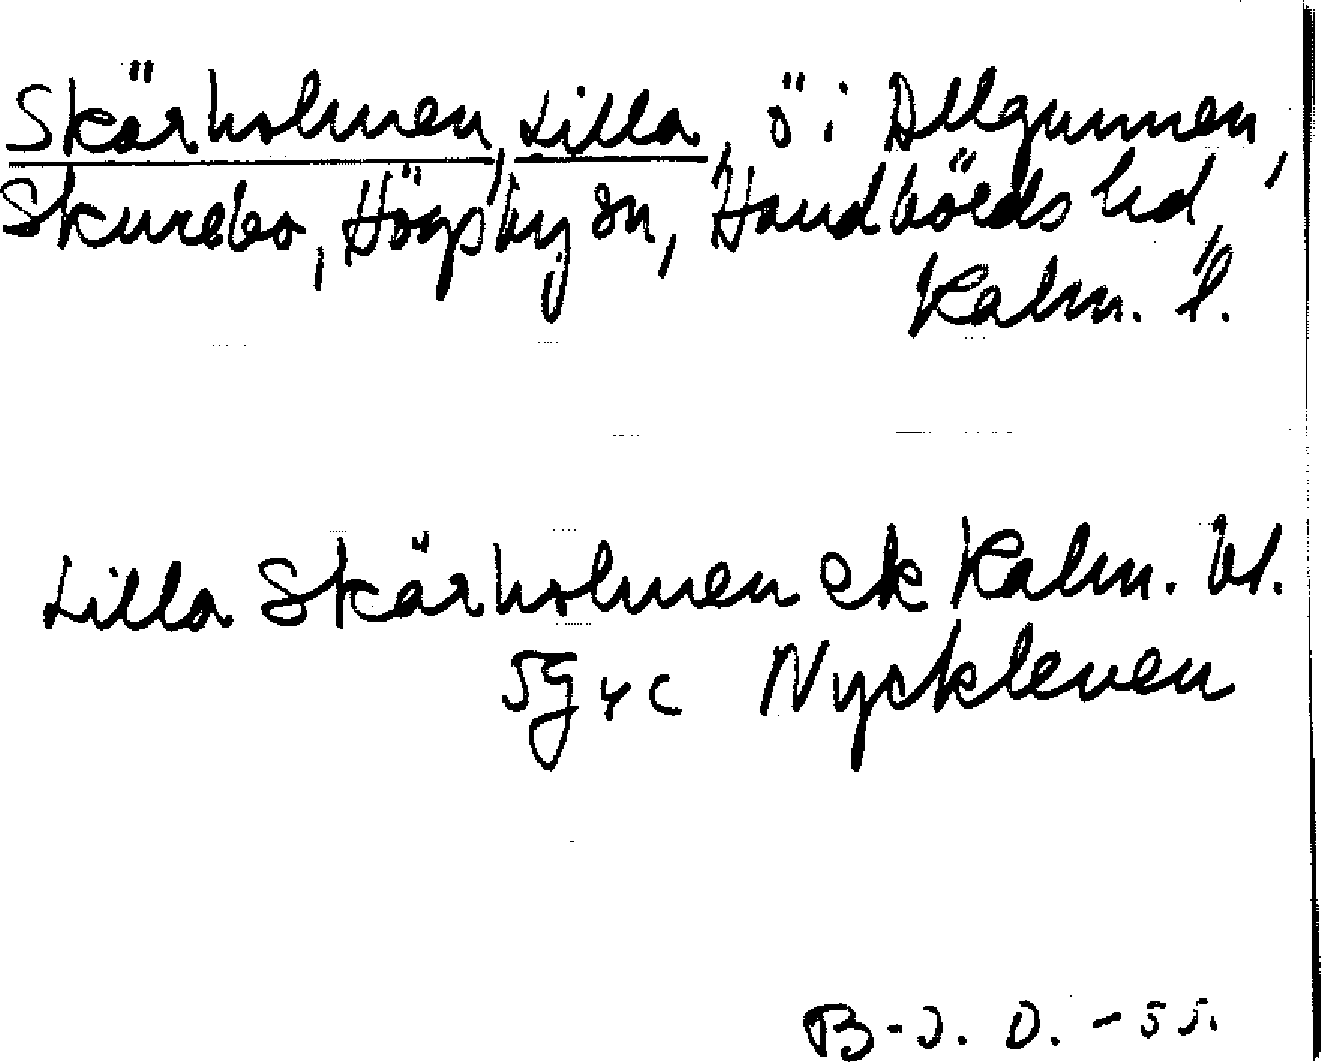 Skärholmen, Lilla, ö i Allgunnen,
Skurebo, Högsby sn, Handbörds hd,
Kalm. l.
Lilla Skärholmen ek Kalm. bl.
5g4c Nyckleven
B-J. O. -55.